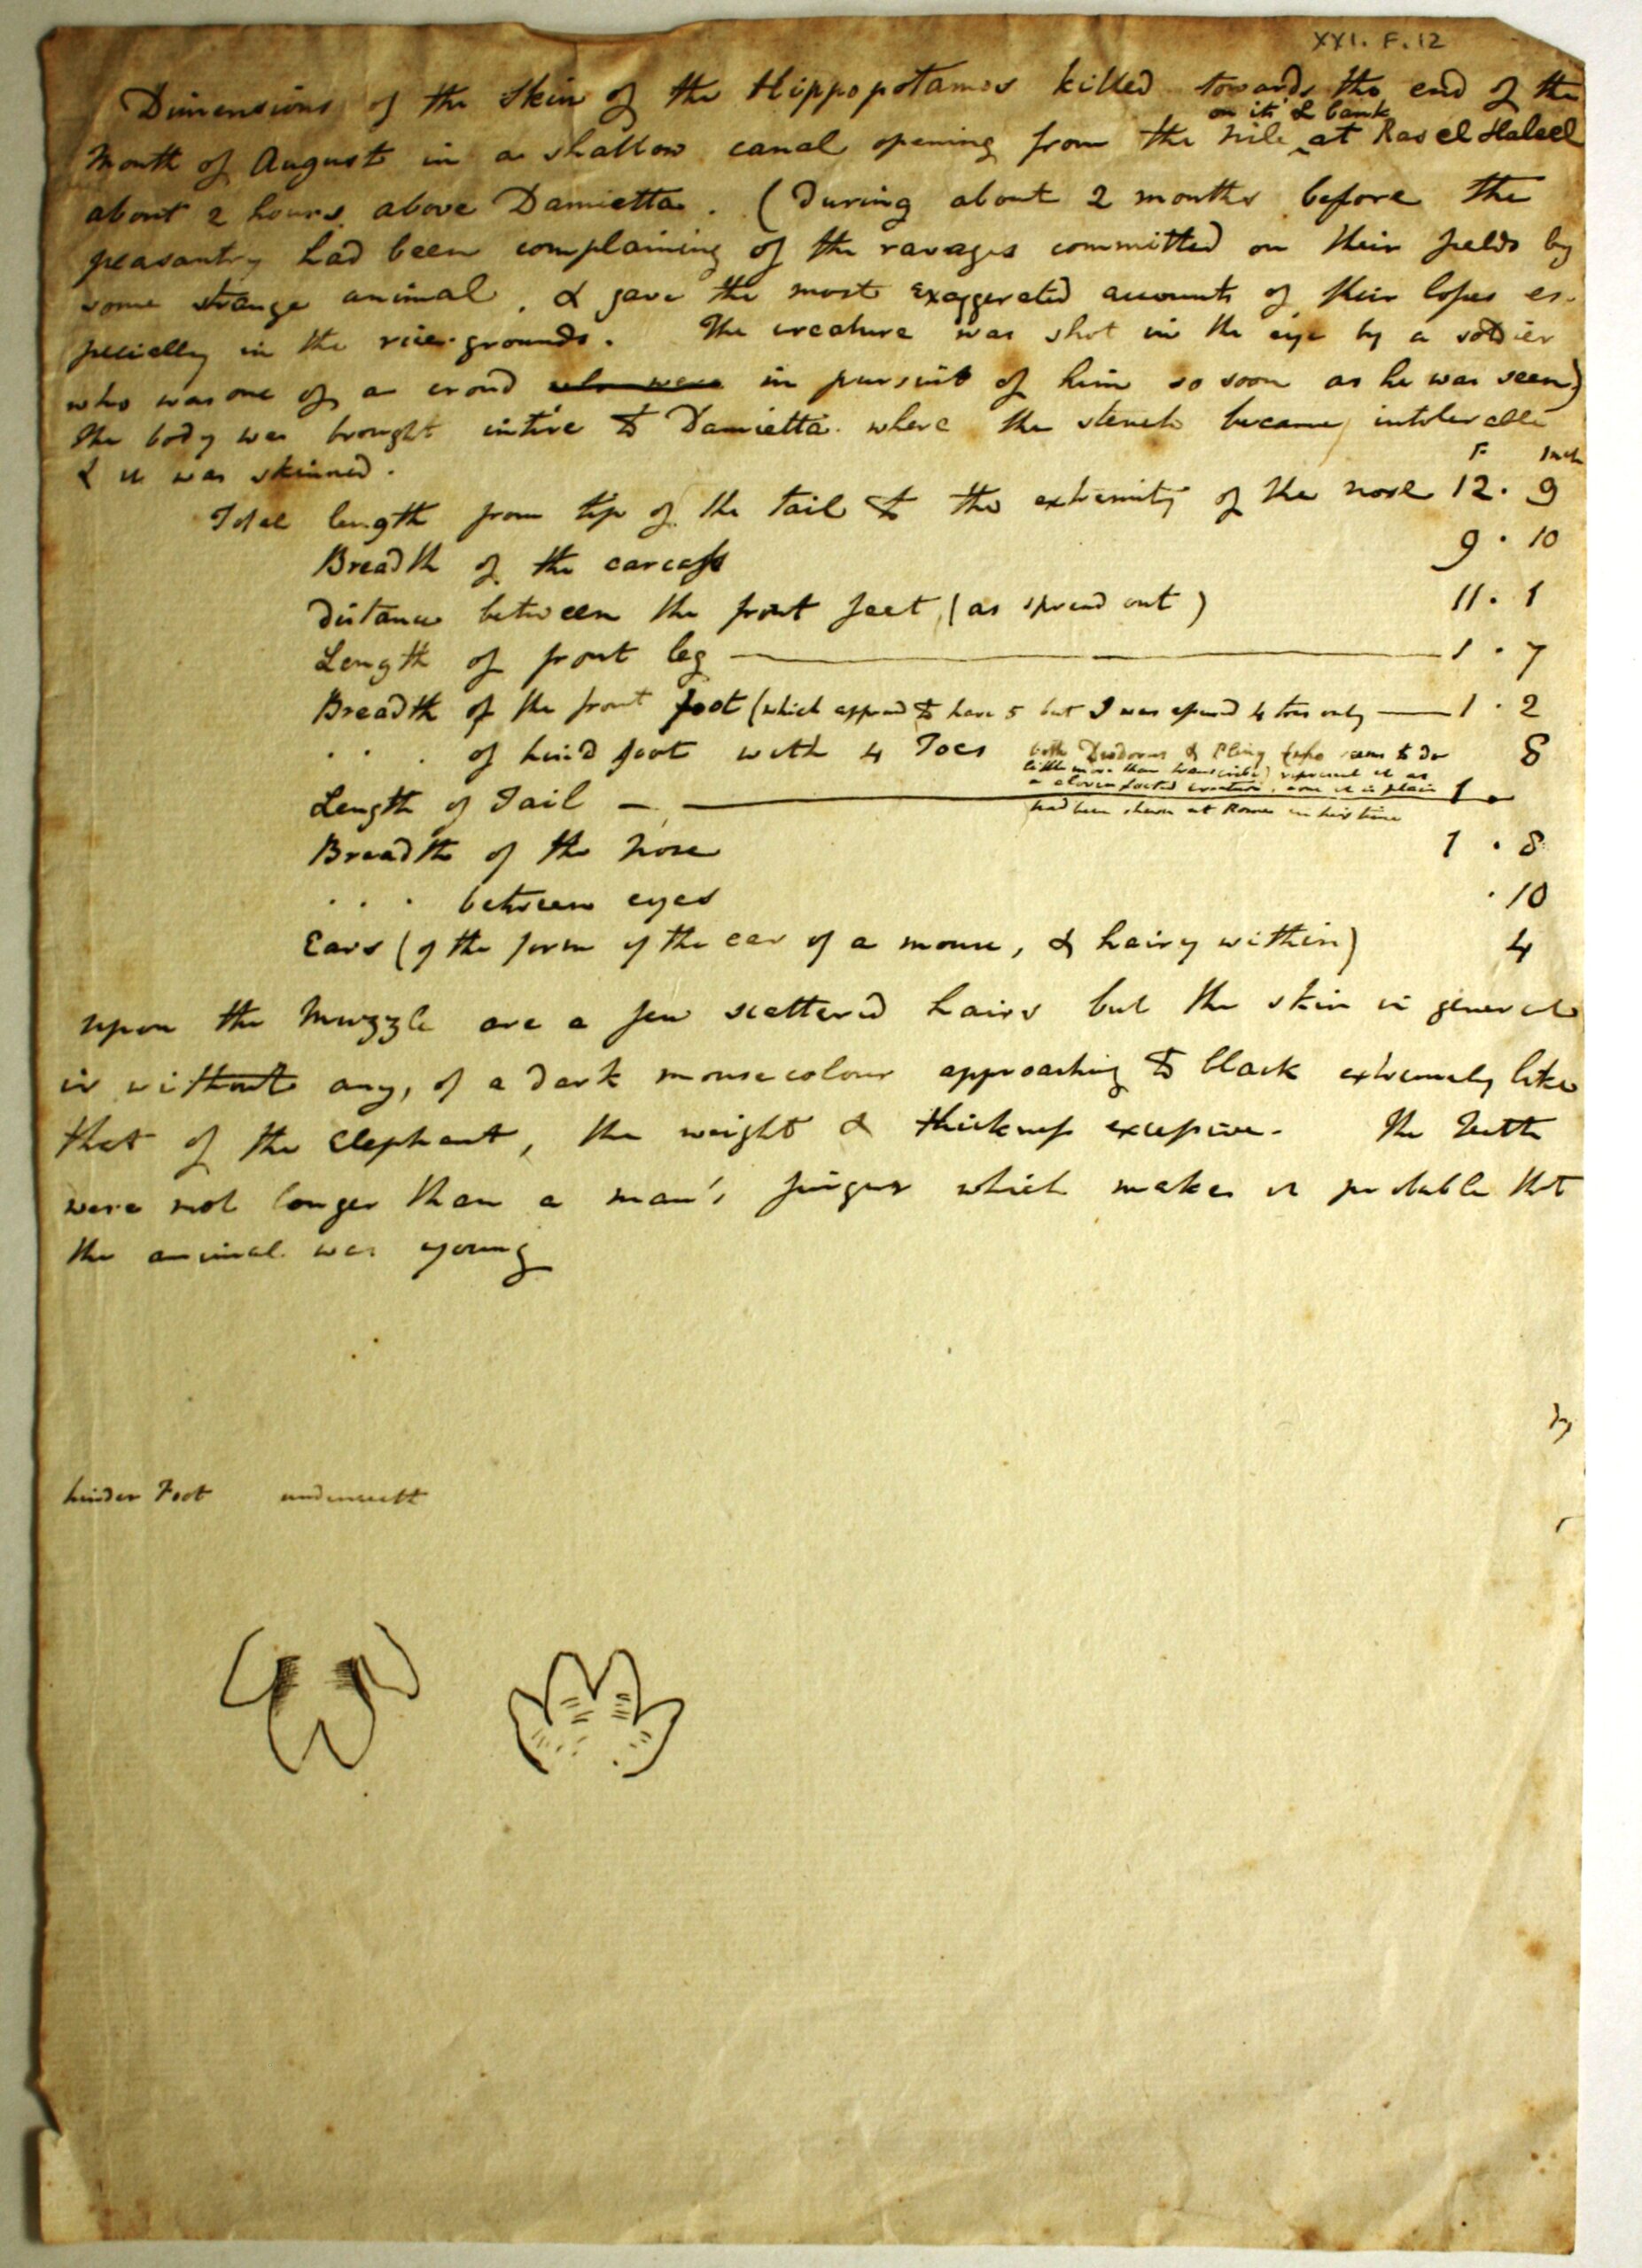 XXI. F. 12
Dimensions of the Skin of the Hippopotamos killed towards the end of the
on its bank
Month of August in a shallow canal opening from the Nile ^ at Ras el Haleel
about 2 hours above Damietta. (During about 2 months before the
peasantry had been complaining of the ravages committed on their fields by
some strange animal, & gave the most exaggerated accounts of their losses es-
pecially in the rice-grounds. The creature was shot in the eye by a soldier
who was one of a croud who were in pursuit of him so soon as he was seen)
The body was brought intire to Damietta where the stench became intolerable
& it was skinned.
F Inch
Total length from tip of the tail to the extremity of the nose 12. 9
Breadth of the carcass 9. 10
Distance between the front feet (as spread out) 11. 1
Length of front leg — 1. 7
Breadth of the front foot (which appeard to have 5 but I was 4 toes only — 1. 2
. . . of hind foot with 4 Toes 8
both Diodorus & Pliny (who seems to do
little more than transcribe) represent it as
a cloven footed creature, one it is plain
had been shewn at Rome in his time
Length of Tail — 1.
Breadth of the nose 1. 8
. . . between eyes . 10
Ears (of the form of the ear of a mouse, & hairy within) 4
Upon the Muzzle are a few scattered hairs but the skin in general
is without any, of a dark mouse colour approaching to black extremely like
that of the Elephant, the weight & thickness excessive. The Teeth
were not longer than a man's finger which makes it probable that
the animal was young
hinder Foot underneath